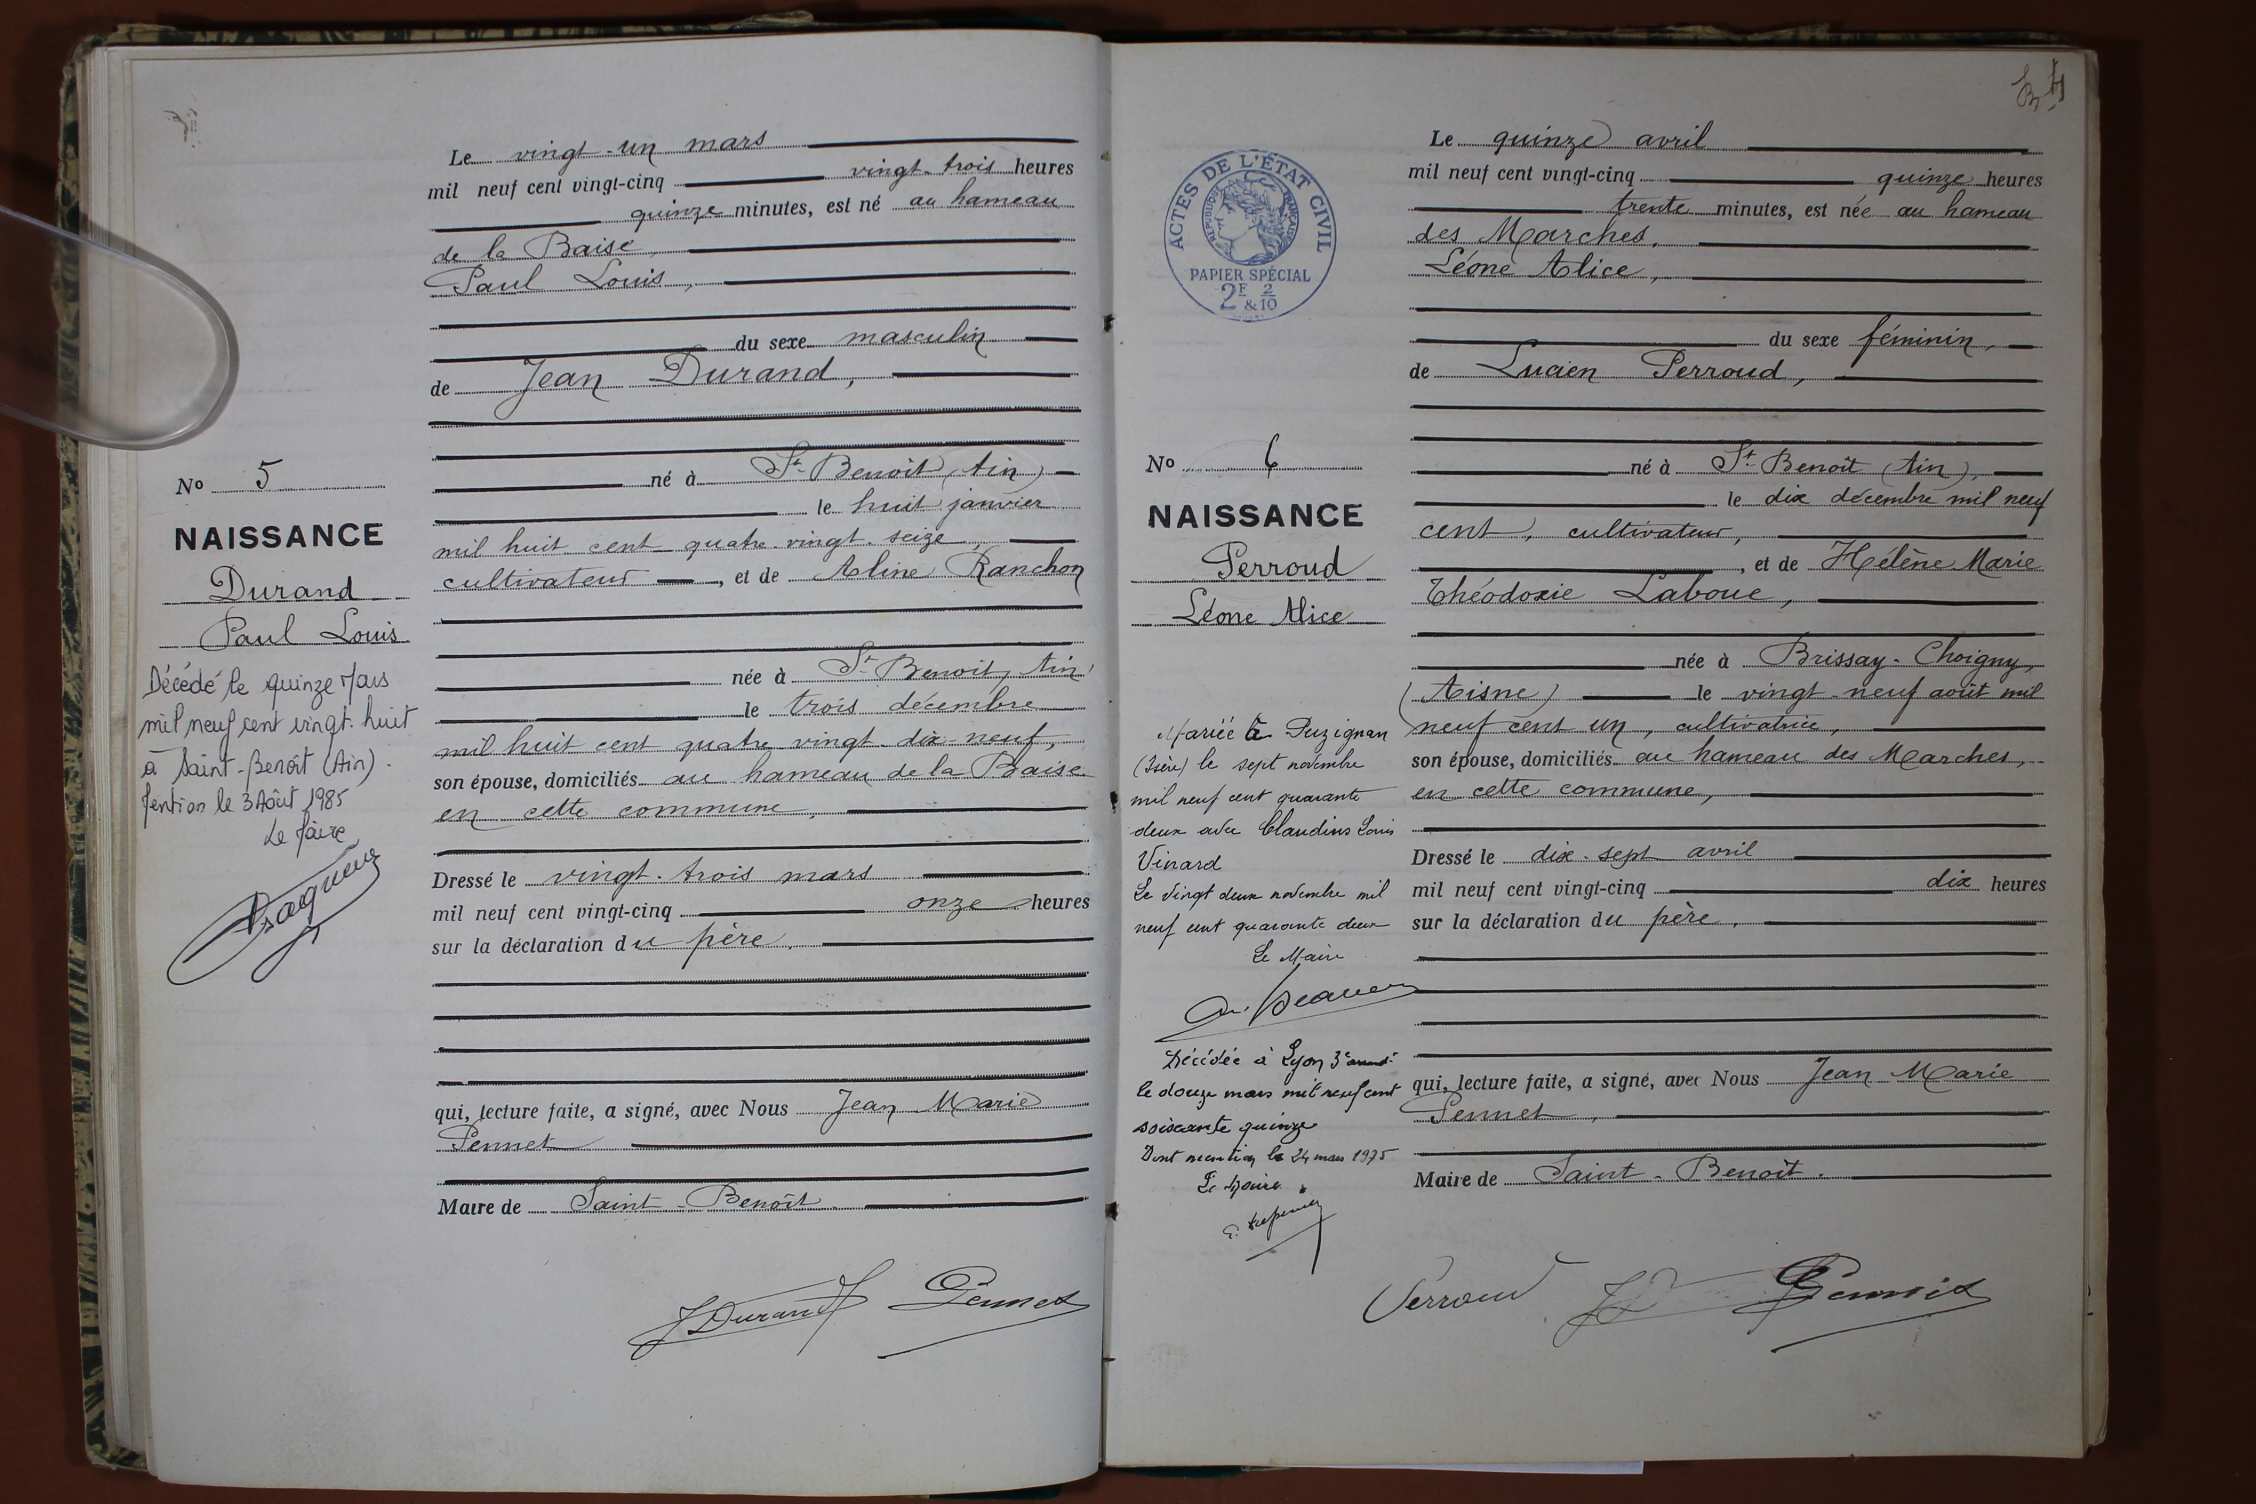 Le vingt-un mars
mil neuf cent vingt-cinq vingt-trois heures
quinze minutes, est né au hameau
de la Baise,
Paul Louis,
du sexe masculin
de Jean Durand,
né à St Benoit (Ain)
le huit janvier
mil huit cent quatre-vingt-seize,
cultivateur, et de Aline Ranchon
née à St Benoit, Ain
le trois décembre
mil huit cent quatre vingt-dix-neuf,
son épouse, domiciliés au hameau de la Baise
en cette commune,
Dressé le vingt-trois mars
mil neuf cent vingt-cinq onze heures
sur la déclaration du père.
qui, lecture faite, a signé, avec Nous Jean Marie
Pennet
Maire de Saint-Benoît
J Durand Pennet
No 5
NAISSANCE
Durand
Paul Louis
Décédé le quinze Mars
mil neuf cent vingt-huit
à Saint-Benoît (Ain).
Mention le 3 Août 1985
Le Maire
Le quinze avril
mil neuf cent vingt-cinq quinze heures
trente minutes, est née au hameau
des Marches,
Léone Alice,
du sexe féminin,
de Lucien Perroud,
né à St Benoît (Ain),
le dix décembre mil neuf
cent, cultivateur,
, et de Hélène Marie
Théodoxie Laboue,
née à Brissay-Choigny,
(Aisne) le vingt-neuf août mil
neuf cent un, cultivatrice,
son épouse, domiciliés au hameau des Marches,
en cette commune,
Dressé le dix-sept avril
mil neuf cent vingt-cinq dix heures
sur la déclaration du père,
qui, lecture faite, a signé, avec Nous Jean Marie
Pennet,
Maire de Saint-Benoît.
Perroud Pennet
ACTES DE L'ÉTAT CIVIL
RÉPUBLIQUE FRANÇAISE
PAPIER SPÉCIAL
2F 2
&10
No 6
NAISSANCE
Perroud
Léone Alice
Mariée à Puzignan
(Isère) le sept novembre
mil neuf cent quarante
deux avec Claudius Louis
Vinard
Le vingt deux novembre mil
neuf cent quarante deux
Le Maire
Décédée à Lyon 3e arrondt
le douze mars mil neuf cent
soixante quinze
Dont mention le 24 mars 1975
Le Maire